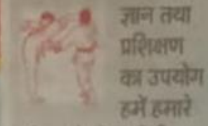 ज्ञान तथा
प्रशिक्षण
का उपयोग
हमें हमारे